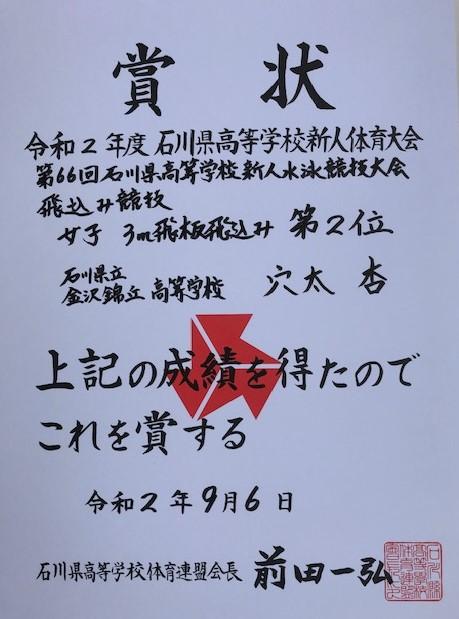 賞状
令和2年度石川県高等学校新人体育大会
第66回石川県高等学校新人水泳競技大会
飛込み競技
女子 3m飛板飛込み 第2位
石川県立
金沢錦丘高等学校 穴太 杏
上記の成績を得たので
これを賞する
令和2年9月6日
石川県高等学校体育連盟会長 前田一弘